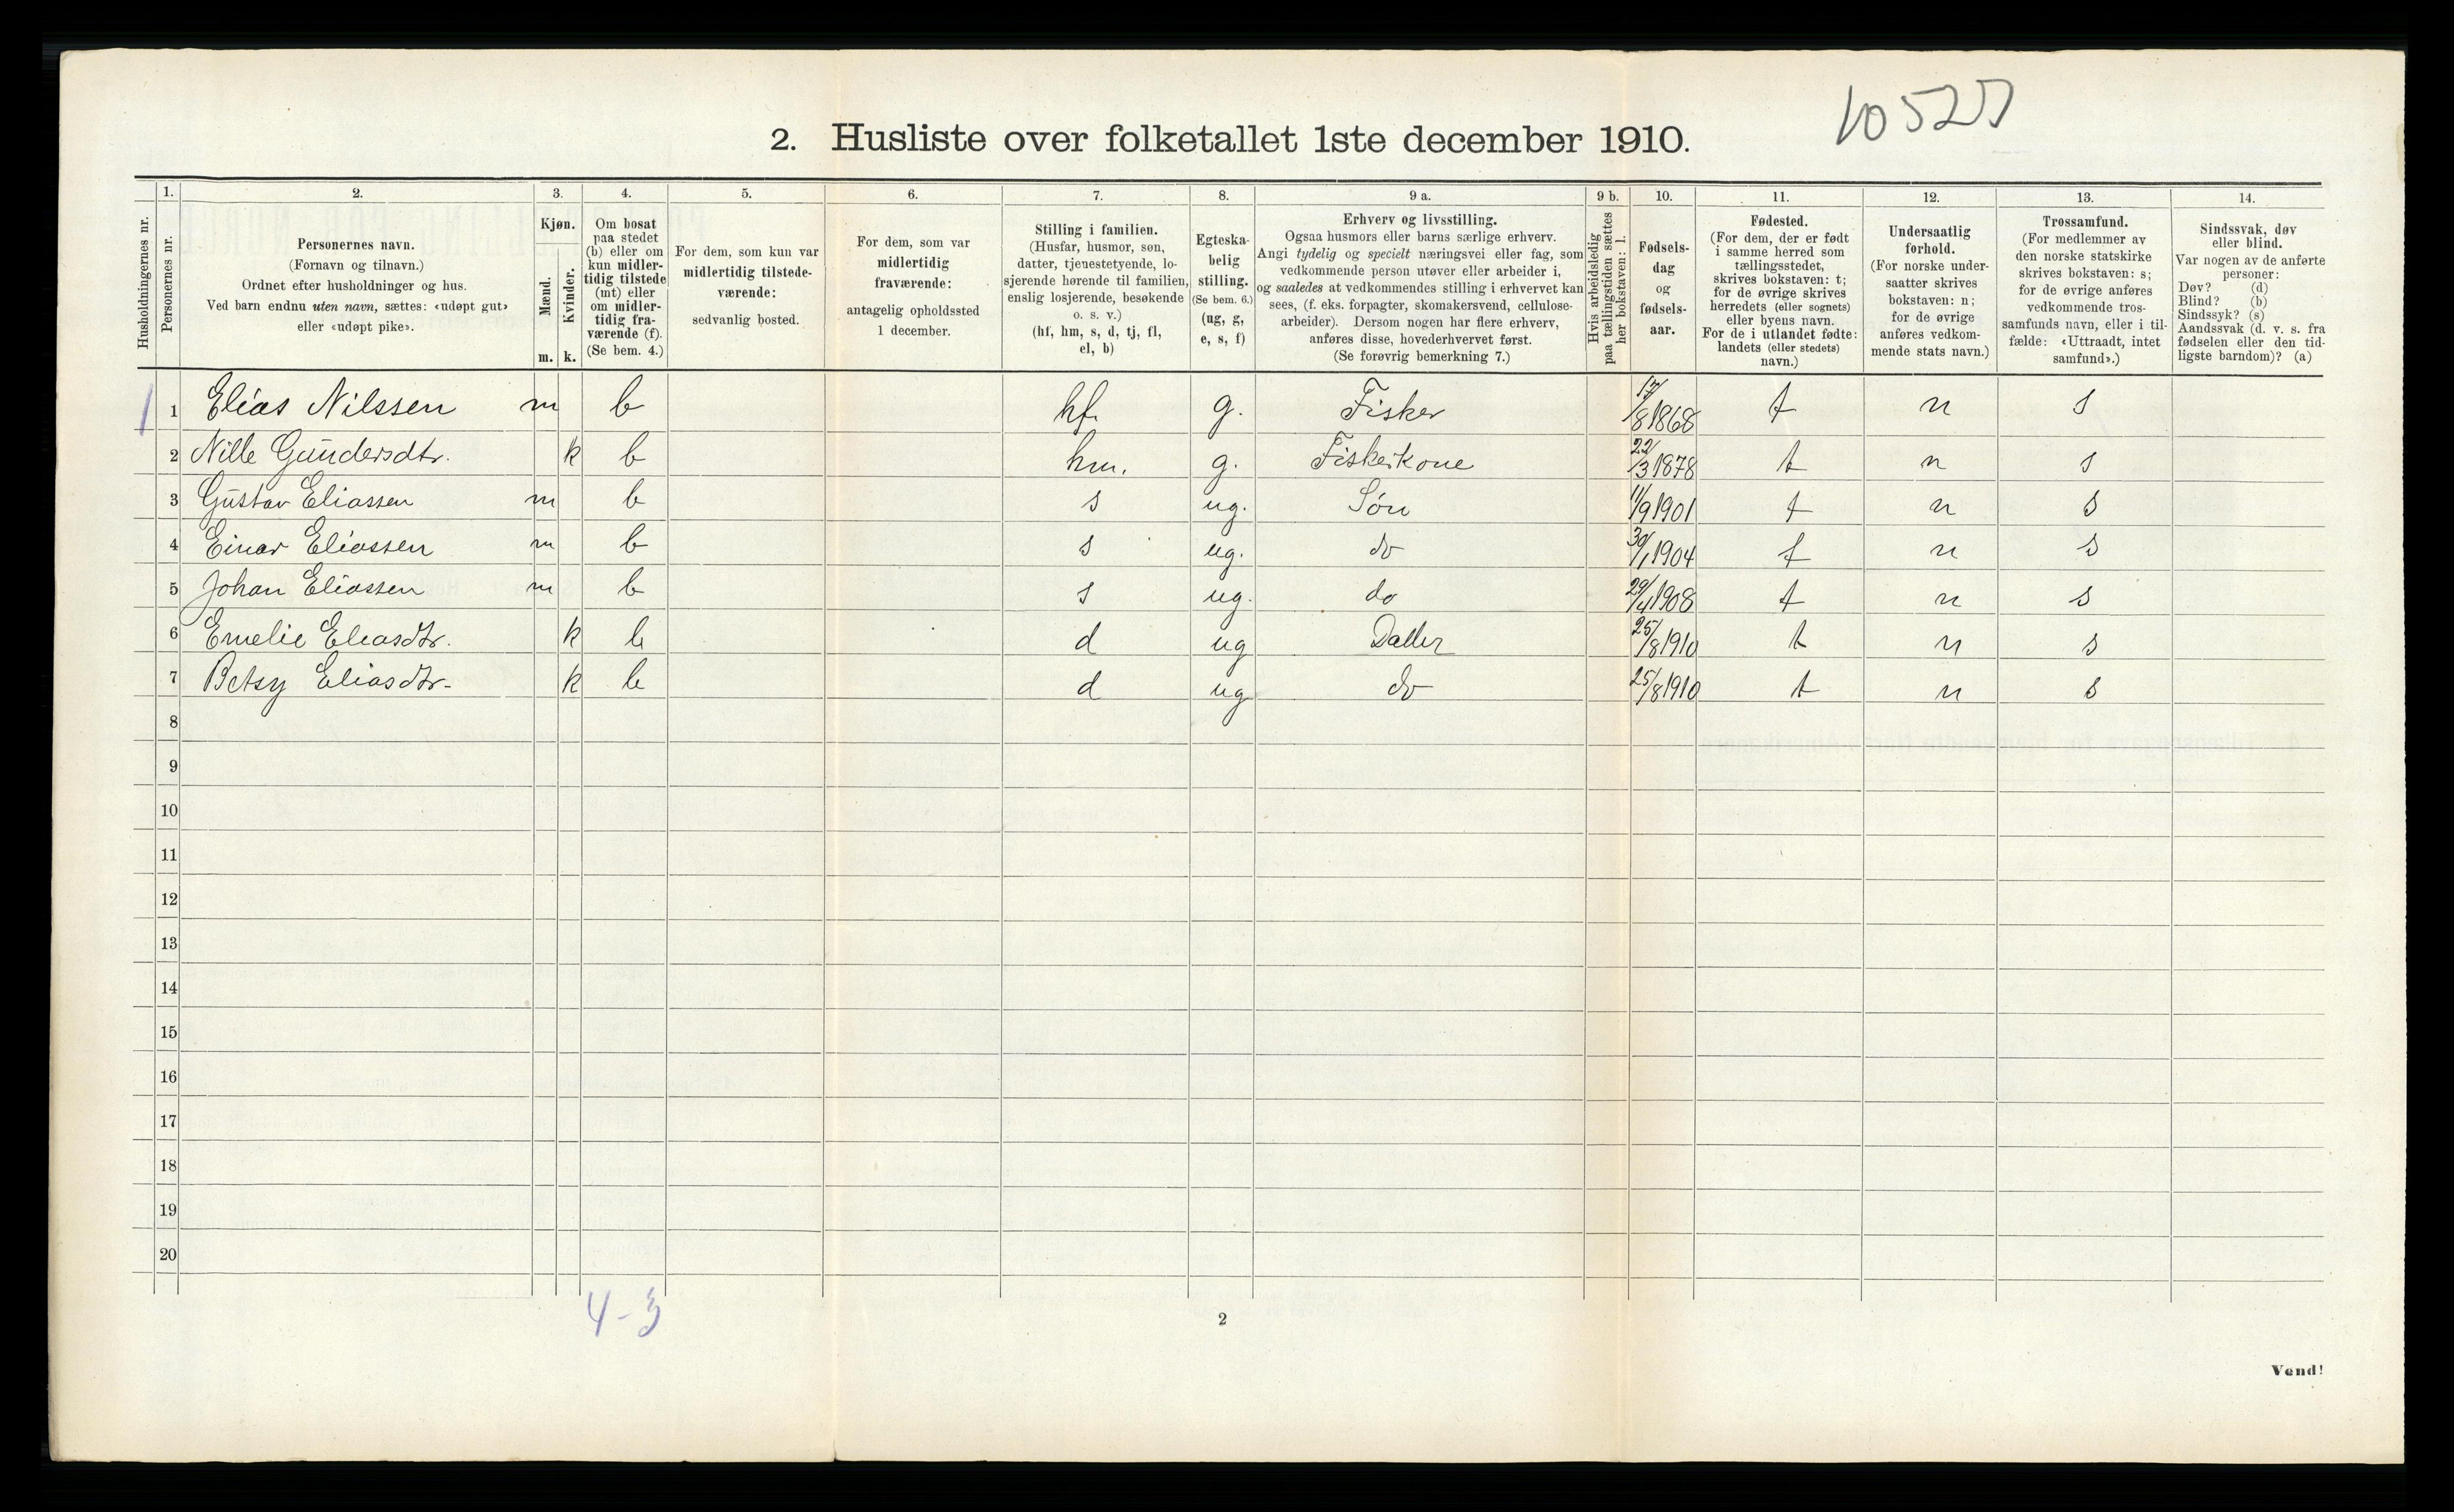 10527
2. Husliste over folketallet 1ste december 1910.
1. 2. 3. 4. 5. 6. 7. 8. 9 a. 9 b. 10. 11. 12. 13. 14.
Husholdningernes nr.
Personernes nr.
Personernes navn.
(Fornavn og tilnavn.)
Ordnet efter husholdninger og hus.
Ved barn endnu uten navn, sættes: «udøpt gut»
eller «udøpt pike».
Kjøn.
Mænd.
Kvinder.
m. k.
Om bosat
paa stedet
(b) eller om
kun midler-
tidig tilstede
(mt) eller
om midler-
tidig fra-
værende (f).
(Se bem. 4.)
For dem, som kun var
midlertidig tilstede-
værende:
sedvanlig bosted.
For dem, som var
midlertidig
fraværende:
antagelig opholdssted
1 december.
Stilling i familien.
(Husfar, husmor, søn,
datter, tjenestetyende, lo-
sjerende hørende til familien,
enslig losjerende, besøkende
o. s. v.)
(hf, hm, s, d, tj, fl,
el, b)
Egteska-
belig
stilling.
(Se bem. 6.)
(ug, g,
e, s, f)
Erhverv og livsstilling.
Ogsaa husmors eller barns særlige erhverv.
Angi tydelig og specielt næringsvei eller fag, som
vedkommende person utøver eller arbeider i,
og saaledes at vedkommendes stilling i erhvervet kan
sees, (f. eks. forpagter, skomakersvend, cellulose-
arbeider). Dersom nogen har flere erhverv,
anføres disse, hovederhvervet først.
(Se forøvrig bemerkning 7.)
Hvis arbeidsledig
paa tællingstiden sættes
her bokstaven: l.
Fødsels-
dag
og
fødsels-
aar.
Fødested.
(For dem, der er født
i samme herred som
tællingsstedet,
skrives bokstaven: t;
for de øvrige skrives
herredets (eller sognets)
eller byens navn.
For de i utlandet fødte:
landets (eller stedets)
navn.)
Undersaatlig
forhold.
(For norske under-
saatter skrives
bokstaven: n;
for de øvrige
anføres vedkom-
mende stats navn.)
Trossamfund.
(For medlemmer av
den norske statskirke
skrives bokstaven: s;
for de øvrige anføres
vedkommende tros-
samfunds navn, eller i til-
fælde: «Uttraadt, intet
samfund».)
Sindssvak, døv
eller blind.
Var nogen av de anførte
personer:
Døv? (d)
Blind? (b)
Sindssyk? (s)
Aandssvak (d. v. s. fra
fødselen eller den tid-
ligste barndom)? (a)
1 1 Elias Nilssen m b hf. g. Fisker 17/8 1868 t n s
2 Nille Gundersdtr. k b hm. g. Fiskerkone 22/3 1878 t n s
3 Gustav Eliassen m b s ug. Søn 11/9 1901 t n s
4 Einar Eliassen m b s ug. do 30/1 1904 t n s
5 Johan Eliassen m b s ug. do 29/4 1908 t n s
6 Emelie Eliasdtr. k b d ug Datter 25/8 1910 t n s
7 Betsy Eliasdtr. k b d ug do 25/8 1910 t n s
8
9
10
11
12
13
14
15
16
17
18
19
20
4-3
2
Vend!